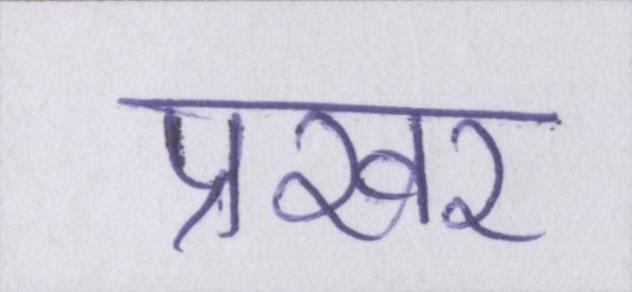 प्रखर